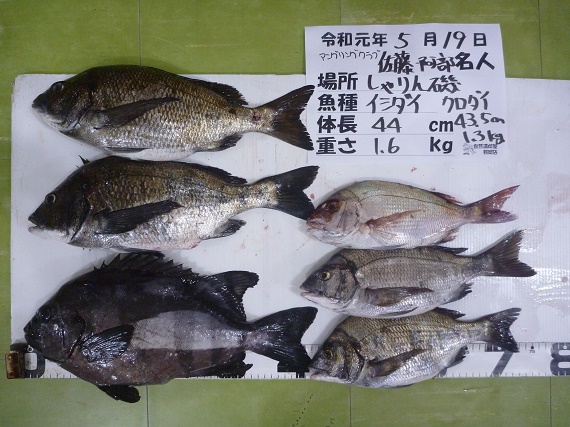 令和元年 5 月 19 日
マングリングクラブ 佐藤 阿部名人
場所 しゃりん磯
魚種 イシダイ クロダイ
体長 44 cm 43.5cm
重さ 1.6 kg 1.3kg